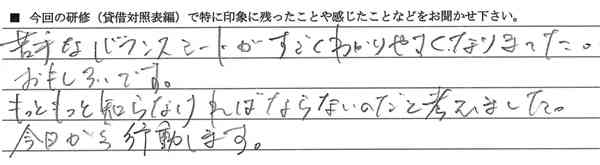 ■ 今回の研修（貸借対照表編）で特に印象に残ったことや感じたことなどをお聞かせ下さい。
苦手なバランスシートがすごくわかりやすくなりました。
おもしろいです。
もっともっと知らなければならないのだと考えました。
今日から行動します。